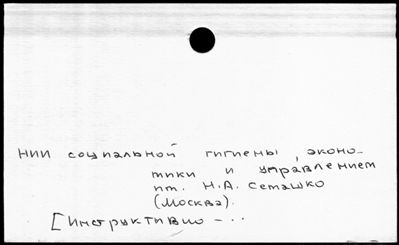 НИИ социальной гигиены, эконо-
мики и управлением
им. Н.А. Семашко
(Москва).
[Инструктивно - ..